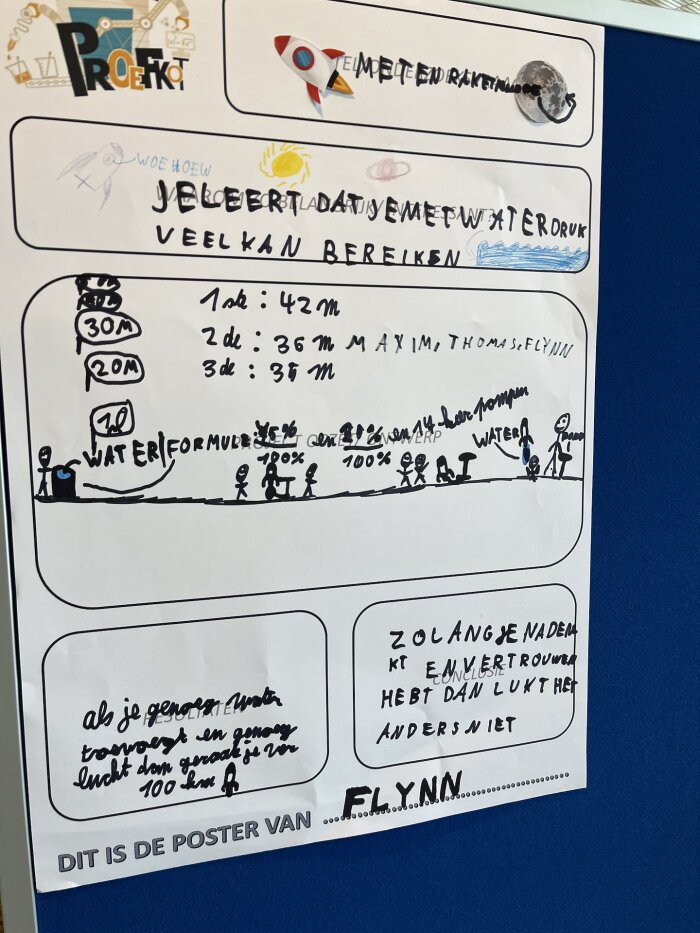 PROEFKOT
MET EN RAKET
WOEHOEW
JE LEERT DAT JE MET WATERDRUK
VEEL KAN BEREIKEN
30M
20M
1ste : 42 m
2de : 36 m MAXIM, THOMAS & FLYNN
3de : 35 m
WATER FORMULE: 100% en 100% en 14 keer pompen
WATER
als je genoeg water
toevoegt en genoeg
lucht dan geraak je ver
100 km
RESULTATEN
ZOLANG JE NADEN
KT EN VERTROUWEN
HEBT DAN LUKT HET
ANDERS NIET
CONCLUSIE
DIT IS DE POSTER VAN FLYNN